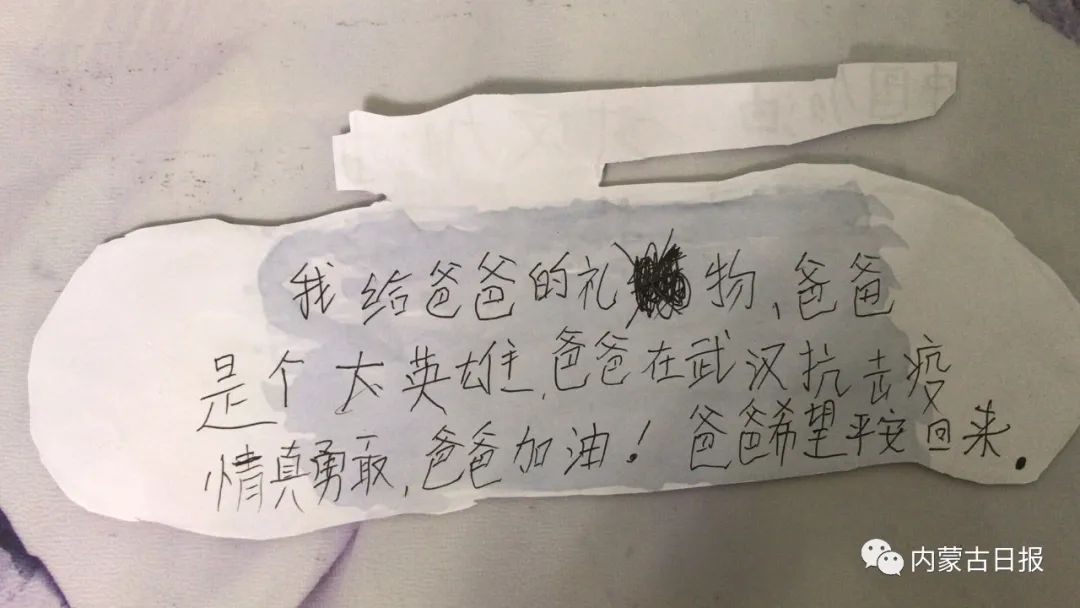 中国加油
我给爸爸的礼物、爸爸
是个大英雄,爸爸在武汉抗去疫
情真勇敢,爸爸加油！爸爸希望平安回来.
内蒙古日报